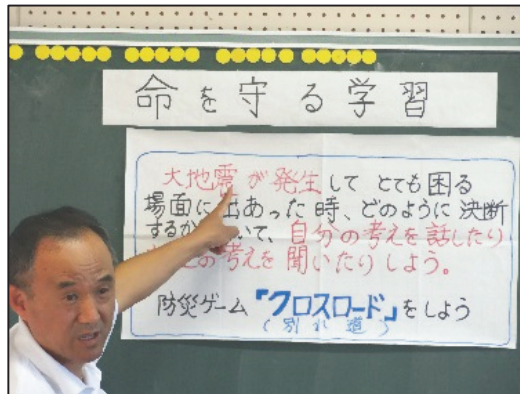 命を守る学習
大地震が発生して とても困る
場面に出あった時、どのように決断
するか いて、自分の考えを話したり
の考えを聞いたりしよう。
防災ゲーム「クロスロード」をしよう
(別れ道)